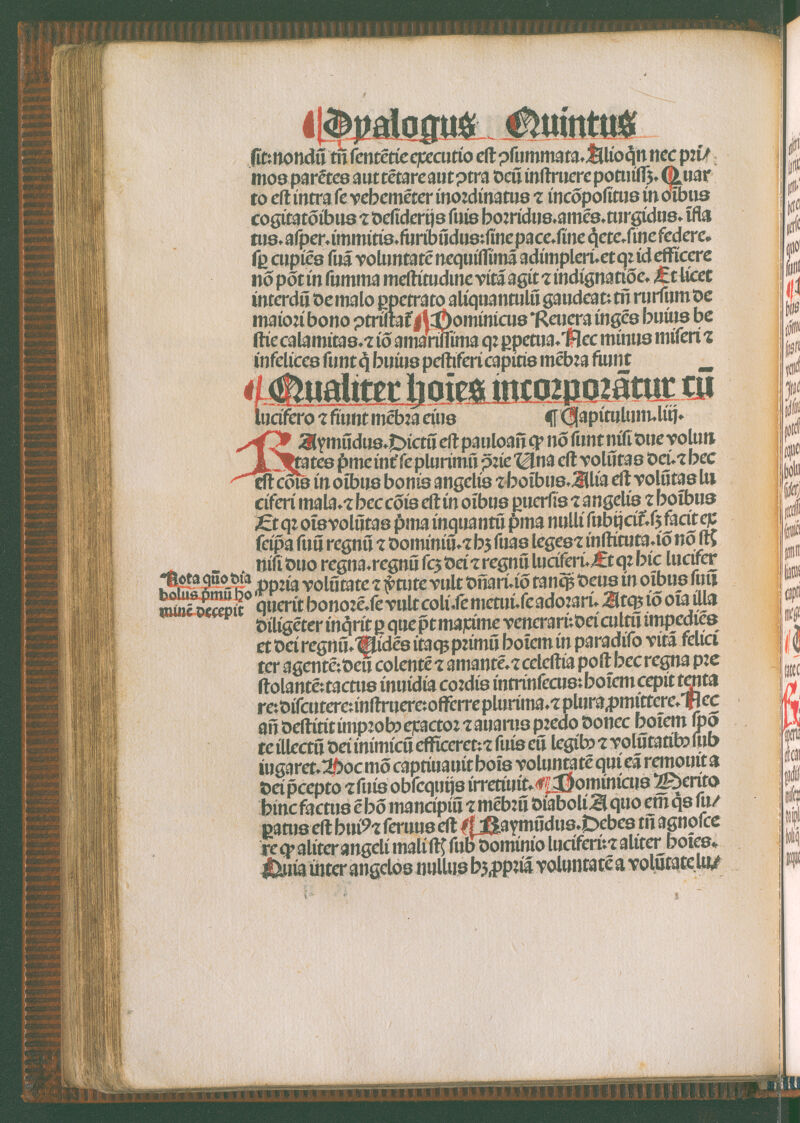 Dyalogus Quintus
sit: nondū tñ sentētie executio est ꝯsummata. Alioq̄n nec pri/
mos parētes aut tētare aut ꝯtra deū instruere potuissꝫ. Quar
to est intra se vehemēter inordinatus ⁊ incōpositus in oībus
cogitatōibus ⁊ desiderijs suis horridus. amēs. turgidus. īfla
tus. asper. immitis. furibūdus: sine pace. sine q̄ete. sine federe.
sꝑ cupiēs suā voluntatē nequissimā adimpleri. et qꝛ id efficere
nō pōt in summa mestitudine vitā agit ⁊ indignatiōe. Et licet
interdū de malo ꝑpetrato aliquantulū gaudeat: tñ rursum de
maiori bono ꝯtristat̄ ¶ Dominicus Reuera ingēs huius be
stie calamitas. ⁊ iō amarissima qꝛ ꝑpetua. Nec minus miseri ⁊
infelices sunt q̇ huius pestiferi capitis mēbra fiunt
¶ Qualiter hoīes incorporātur cū
lucifero ⁊ fiunt mēbra eius ¶ Capitulum. liij.
RAymūdus. Dictū est pauloañ ꝙ nō sunt nisi due volun
tates p̄me int̄ se plurimū ꝯ̄rie Una est volūtas dei. ⁊ hec
est cōis in oībus bonis angelis ⁊ hoībus. Alia est volūtas lu
ciferi mala. ⁊ hec cōis est in oībus ꝑuersis ⁊ angelis ⁊ hoībus
Et qꝛ oīs volūtas p̄ma inquantū p̄ma nulli subijcit̄. sꝫ facit ex
seip̄a suū regnū ⁊ dominiū. ⁊ hꝫ suas leges ⁊ instituta. iō nō st̄
nisi duo regna. regnū scꝫ dei ⁊ regnū luciferi. Et qꝛ hic lucifer
Nota quō dia
bolus p̄mū ho
minē decepit
ꝓpria volūtate ⁊ v̄tute vult dn̄ari. iō tanqꝫ deus in oībus suū
querit honorē. se vult coli. se metui. se adorari. Atqꝫ iō oīa illa
diligēter inq̄rit ꝑ que p̄t maxime venerari: dei cultū impediēs
et dei regnū. Uidēs itaqꝫ primū hoīem in paradiso vitā felici
ter agentē: deū colentē ⁊ amantē. ⁊ celestia post hec regna pre
stolantē: tactus inuidia cordis intrinsecus: hoīem cepit tenta
re: discutere: instruere: offerre plurima. ⁊ plura ꝓmittere. Nec
añ destitit improbꝰ exactor ⁊ auarus predo donec hoīem spō
te illectū dei inimicū efficeret: ⁊ suis eū legibꝰ ⁊ volūtatibꝰ sub
iugaret. Hoc mō captiuauit hoīs voluntatē qui eā remouit a
dei p̄cepto ⁊ suis obsequijs irretiuit. ¶ Dominicus Merito
hinc factus ē hō mancipiū ⁊ mēbrū diaboli A quo em̄ q̇s su/
ꝑatus est huiꝰ ⁊ seruus est ¶ Raymūdus. Debes tñ agnosce
re ꝙ aliter angeli mali st̄ sub dominio luciferi: ⁊ aliter hoīes.
Quia inter angelos nullus hꝫ ꝓpriā voluntatē a volūtate lu/